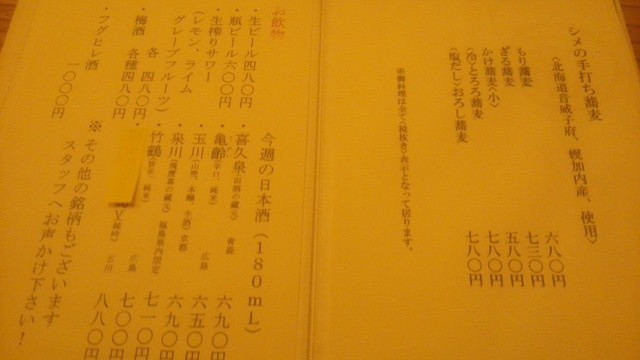 シメの手打ち蕎麦
〈北海道音威子府、幌加内産、使用〉
もり蕎麦 六八〇円
ざる蕎麦 七三〇円
かけ蕎麦〈小〉 五八〇円
〈冷〉とろろ蕎麦 七八〇円
〈塩だし〉おろし蕎麦 七八〇円
※御料理は全て〈税抜き〉表示となって居ります。
お飲物
・生ビール四八〇円
・瓶ビール六〇〇円
・生搾りサワー
(レモン、ライム
グレープフルーツ)
各 四八〇円
・梅酒 各種四八〇円
・フグヒレ酒
一〇〇〇円
今週の日本酒(180mL)
・喜久泉(田酒の蔵元) 青森 六九〇円
・亀齢(辛口、純米) 広島 六五〇円
・玉川(山廃、木桶、生酒)京都 六九〇円
・泉川(飛露喜の蔵元)福島県内限定 七一〇円
・竹鶴 純米) 広島 七〇〇円
石川 八八〇円
※ その他の銘柄もございます
スタッフへお声かけ下さい!